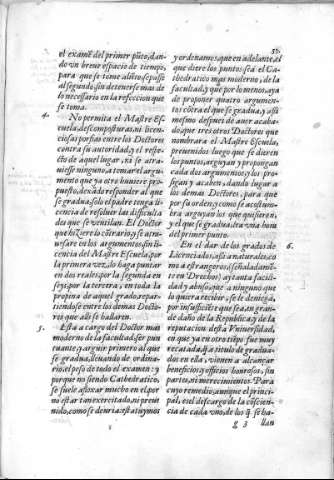 52.
el examẽ del primer pũto, dan-
do vn breve espacio de tiempo,
para que se tome aliẽto, se passe
al segundo, sin detenerse mas de
lo necessario en la refeccion que
se toma.
4. No permita el Maestre Es-
cuela, descomposturas, ni licen-
ciosas porfias entre los Doctores
contra su autoridad, y el respe-
cto de aquel lugar, ni se atra-
uiesse ninguno, a tomar el argu-
mento que ya otro huuiere pro-
puesto, dexãdo responder al que
se gradua, solo el padre tenga li-
cencia de resoluer las difficulta
des que se ventilan. El Doctor
que hiziere lo cõtrario, y se atra-
uessare en los argumentos, sin li-
cencia del Maestre Escuela, por
la primera vez, do haga puntar
en dos reales, por la segunda en
seys, por la tercera, en toda la
propina de aquel grado, repar-
tiendose entre los demas Docto-
res que alli se hallaren.
5. Esta a cargo del Doctor mas
moderno de la facultad, ser pun
tuante, y arguir primero al que
se gradua, lleuando de ordina-
rio, el peso de todo el examen: y
porque no siendo Cathedratico,
se suele afloxar mucho en el, por
no estar tan exercitado, ni preue
nido, como se deuria: estatuymos
y ordenamos, que en adelante, el
que diere los puntos, sea el Ca-
thedratico mas moderno, de la
facultad, y que por lo menos, aya
de proponer quatro argumen-
tos cõtra el que se gradua, y assi
mesmo despues de auer acaba-
do, que tres otros Doctores que
nombrara el Maestre Escuela,
preuenidos luego que se dieren
los puntos, arguyan y propongan
cada dos argumentos, y los pro-
sigan y acaben, dando lugar a
los demas Doctores, para que
por su orden, y como se acostum-
bra arguyan los que quisieren,
y el que se gradua lea vna hora
del primer punto.
6. En el dar de los grados de
Licenciados, assi a naturales, co
mo a estrangeros, (señaladamẽ-
te en Derechos) ay tanta facili-
dad y abuso, que a ninguno que
lo quiera recibir, se le deniega,
por insufficiẽte que sea, en gran-
de daño de la Republica, y de la
reputacion desta Vniuersidad,
en que ya en otro tiẽpo fue muy
recatada, q̃ a titulo de gradua-
dos en ella, vienen a alcançar
beneficios, y officios honrosos, sin
partes, ni merecimientos. Para
cuyo remedio, aunque el princi-
pal, es el descargo de la cõscien-
cia de cada vno, de los q̃ se ha-
g 3 llan